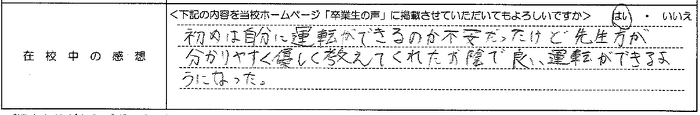 ＜下記の内容を当校ホームページ「卒業生の声」に掲載させていただいてもよろしいですか＞　はい　・　いいえ
在校中の感想
初めは自分に運転ができるのか不安だったけど先生方が
分かりやすく優しく教えてくれたお陰で良い運転ができるよ
うになった。